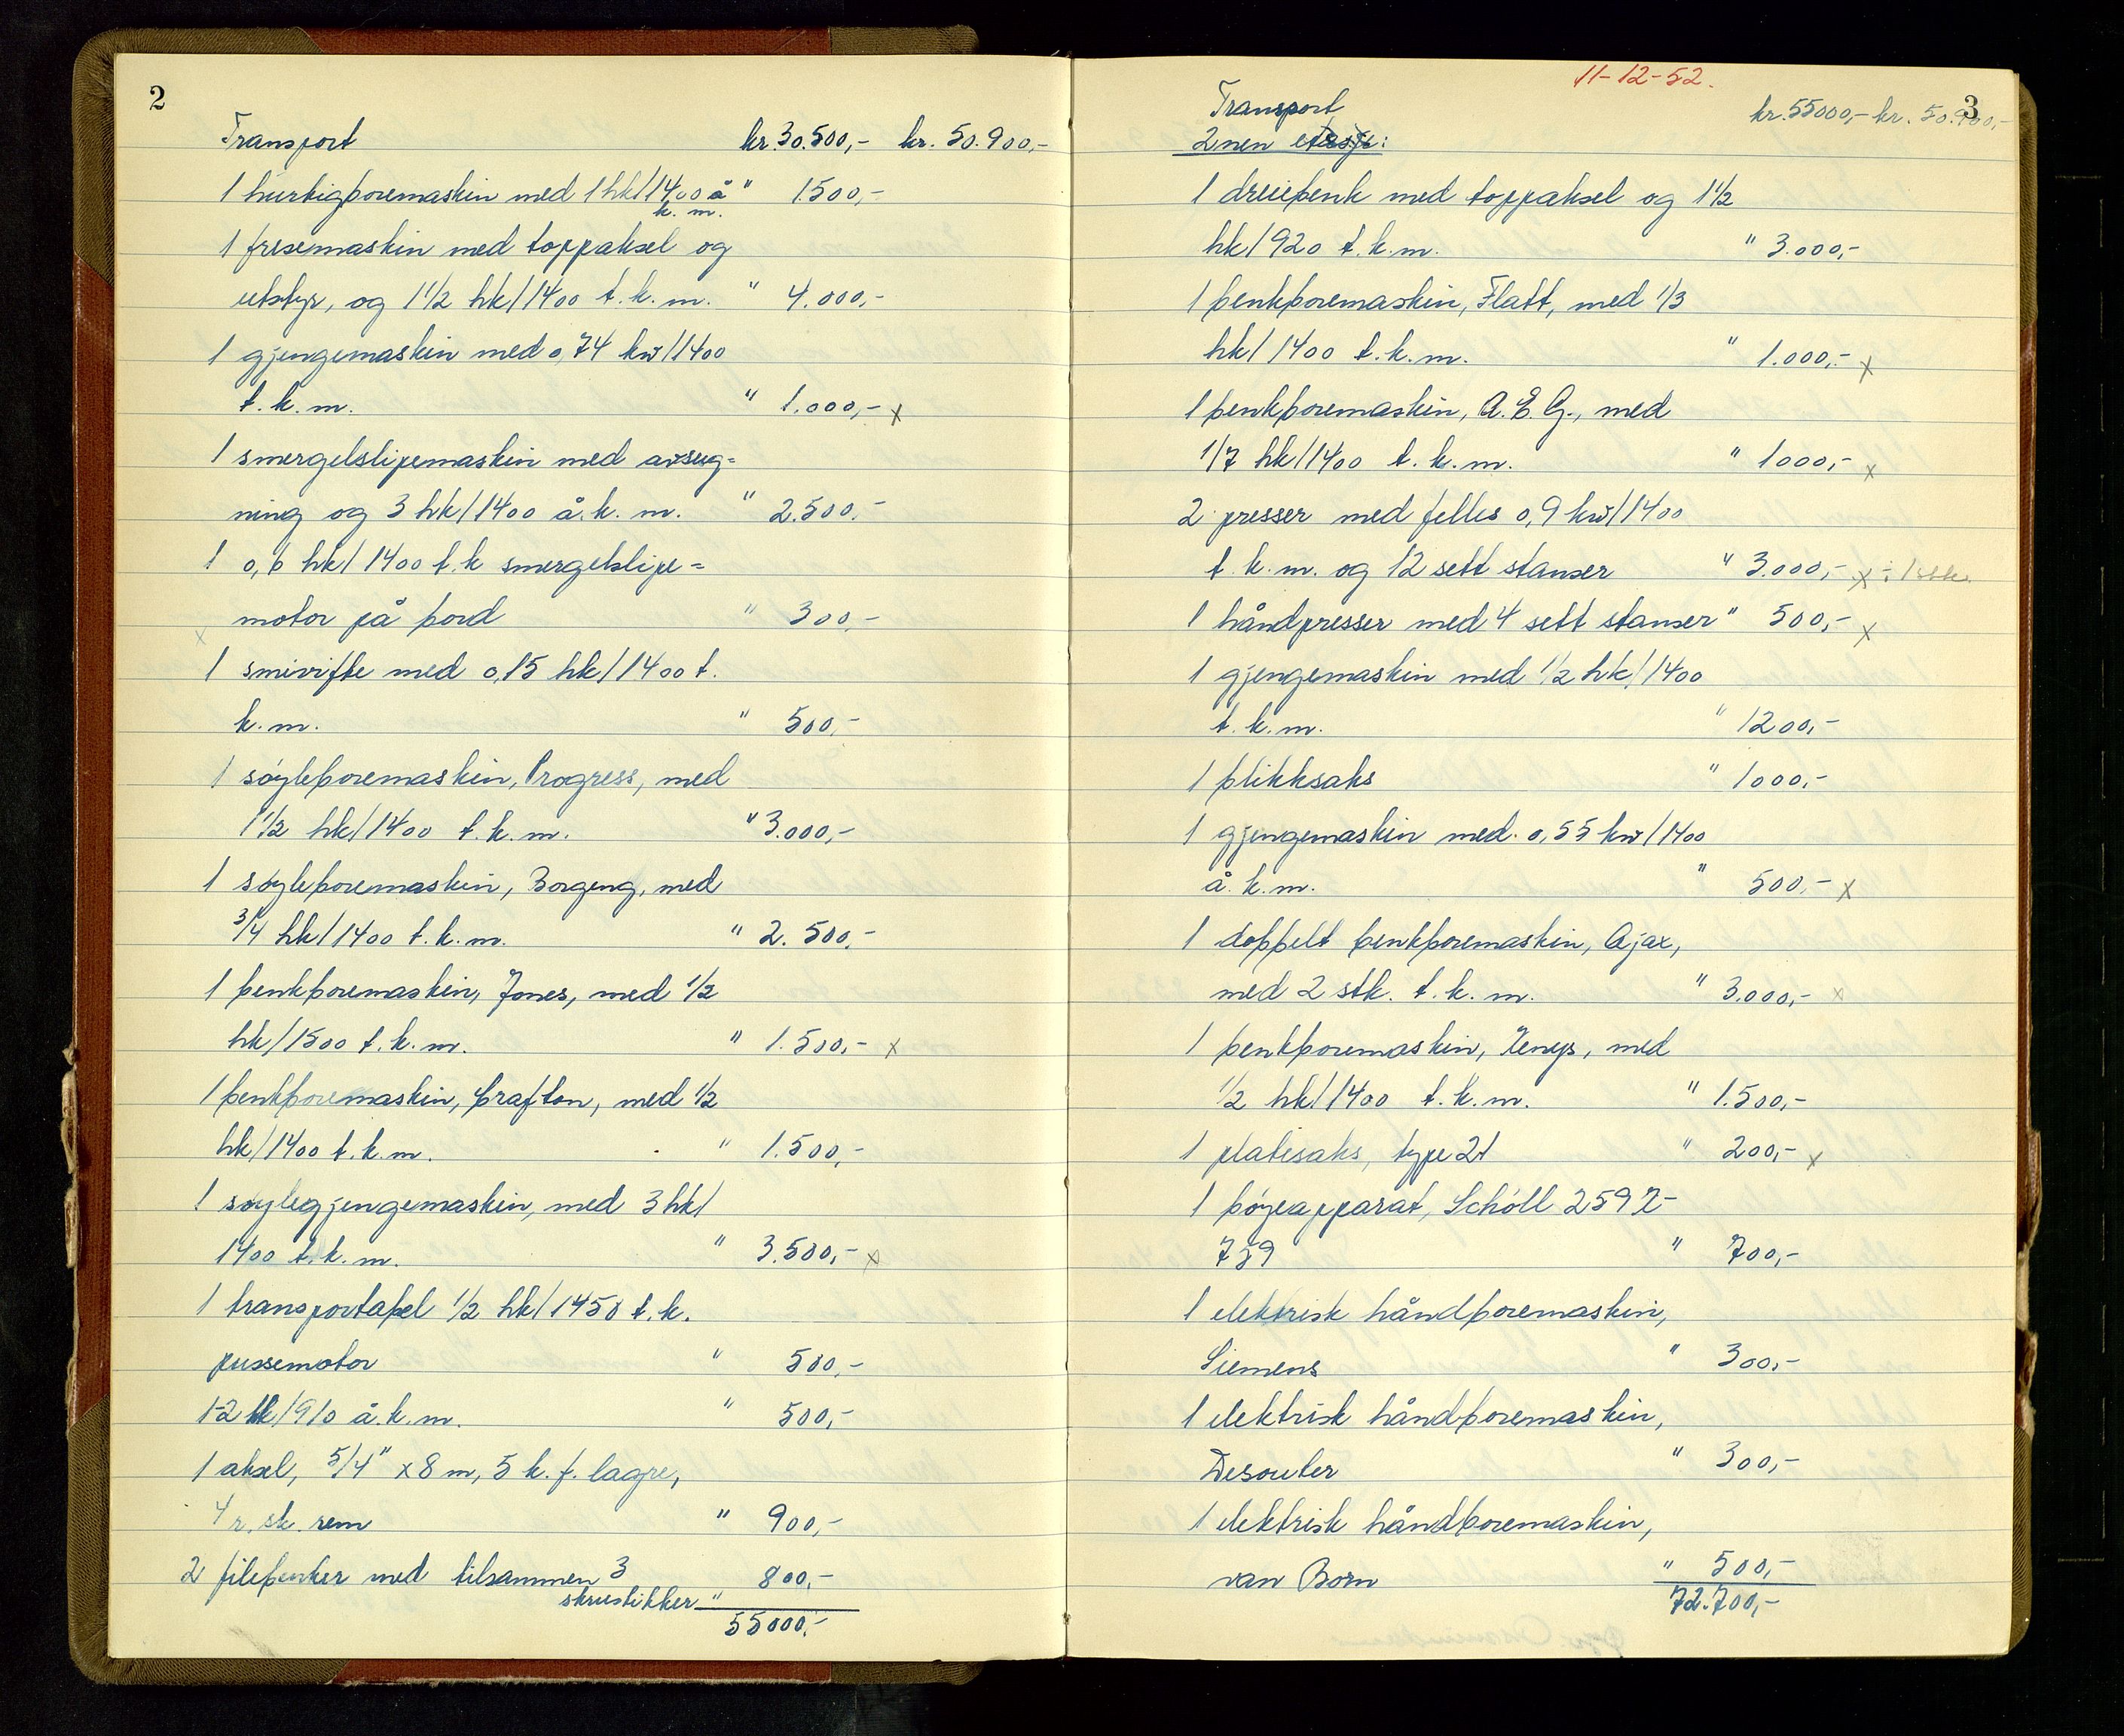 2
Transport kr. 30.500,- kr. 50.900,-
1 hurtigboremaskin med 1 hk/1400 å " 1500,-
k. m.
1 fresemaskin med toppaksel og
utstyr, og 1 1/2 hk/1400 t.k.m. " 4.000,-
1 gjengemaskin med 0,74 kw/1400
t.k.m. " 1.000,- x
1 smergelslipemaskin med avsug=
ning og 3 hk/1400 å.k.m. " 2.500,-
1 0,6 hk/1400 t.k smergelslipe=
motor på bord " 300,-
x
1 smivifte med 0,15 hk/1400 t.
k.m. " 500,-
1 søyleboremaskin, Progress, med
1 1/2 hk/1400 t.k.m. " 3.000,-
1 søyleboremaskin, Borgeng, med
3/4 hk/1400 t.k.m. " 2.500,-
1 benkboremaskin, Jones, med 1/2
hk/1500 t.k.m. " 1.500,- x
1 benkboremaskin, Grafton, med 1/2
hk/1400 t.k.m. " 1.500,-
1 søylegjengemaskin, med 3 hk/
1400 t.k.m. " 3.500,- x
1 transportabel 1/2 hk/1450 t.k.
pussemotor " 500,-
1-2 hk/910 å.k.m. " 500,-
1 aksel, 5/4" x 8 m, 5 k.f. lagre,
4 r. sk. rem " 900,-
2 filebenker med tilsammen 3 800,-
skrustikker "
55000,-
11-12-52.
3
Transport kr. 55000,- kr. 50.900,-
2nen etasje:
1 dreiebenk med toppaksel og 1 1/2
hk/920 t.k.m. " 3.000,-
1 benkboremaskin, Flatt, med 1/3
hk/1400 t.k.m. " 1.000,- x
1 benkboremaskin, A.E.G., med
1/7 hk/1400 t.k.m. " 1000,- x
2 presser med felles 0,9 kw/1400
t.k.m. og 12 sett stanser " 3.000,- x ÷ 1 stk.
1 håndpresser med 4 sett stanser " 500,- x
1 gjengemaskin med 1/2 hk/1400
t.k.m. " 1200,-
1 blikksaks " 1000,-
1 gjengemaskin med 0,55 kw/1400
å.k.m. " 500,- x
1 dobbelt benkboremaskin, Ajax,
med 2 stk. t.k.m. " 3.000,- x
1 benkboremaskin, med
1/2 hk/1400 t.k.m. " 1.500,-
1 platesaks, type 21 " 200,- x
1 bøyeapparat, Schöll 259 Z-
759 " 700,-
1 elektrisk håndboremaskin,
Siemens " 300,-
1 elektrisk håndboremaskin,
Desouter " 300,-
1 elektrisk håndboremaskin,
van Born " 500,-
72.700,-